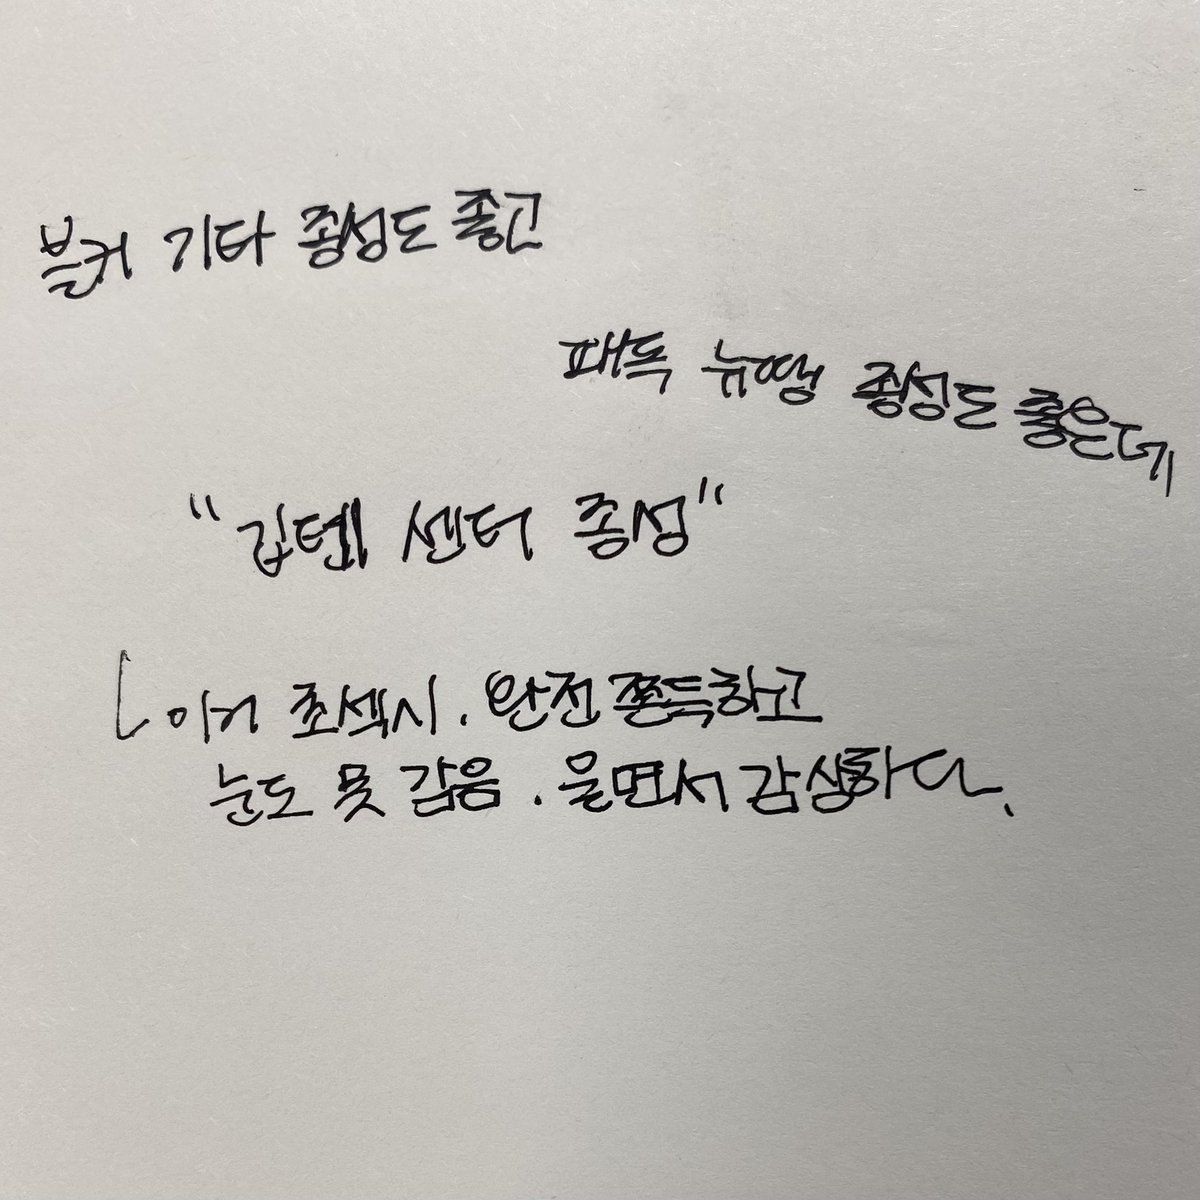 블커 기타 종성도 좋고
패독 뉴땡 종성도 좋은데
"깁텐 센터 종성"
이거 조섹시. 완전 쫀득하고
눈도 못 감음. 울면서 감상하다.